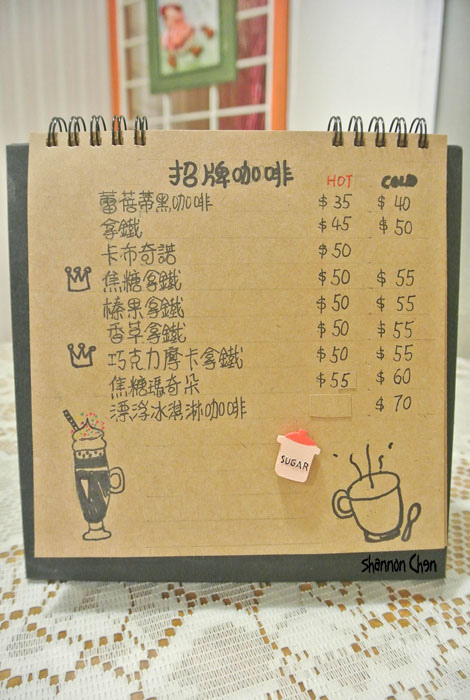 招牌咖啡 HOT COLD
蕾蓓蒂黑咖啡 $35 $40
拿鐵 $45 $50
卡布奇諾 $50
焦糖拿鐵 $50 $55
榛果拿鐵 $50 $55
香草拿鐵 $50 $55
巧克力摩卡拿鐵 $50 $55
焦糖瑪奇朵 $55 $60
漂浮冰淇淋咖啡 $70
SUGAR
Shannon Chen